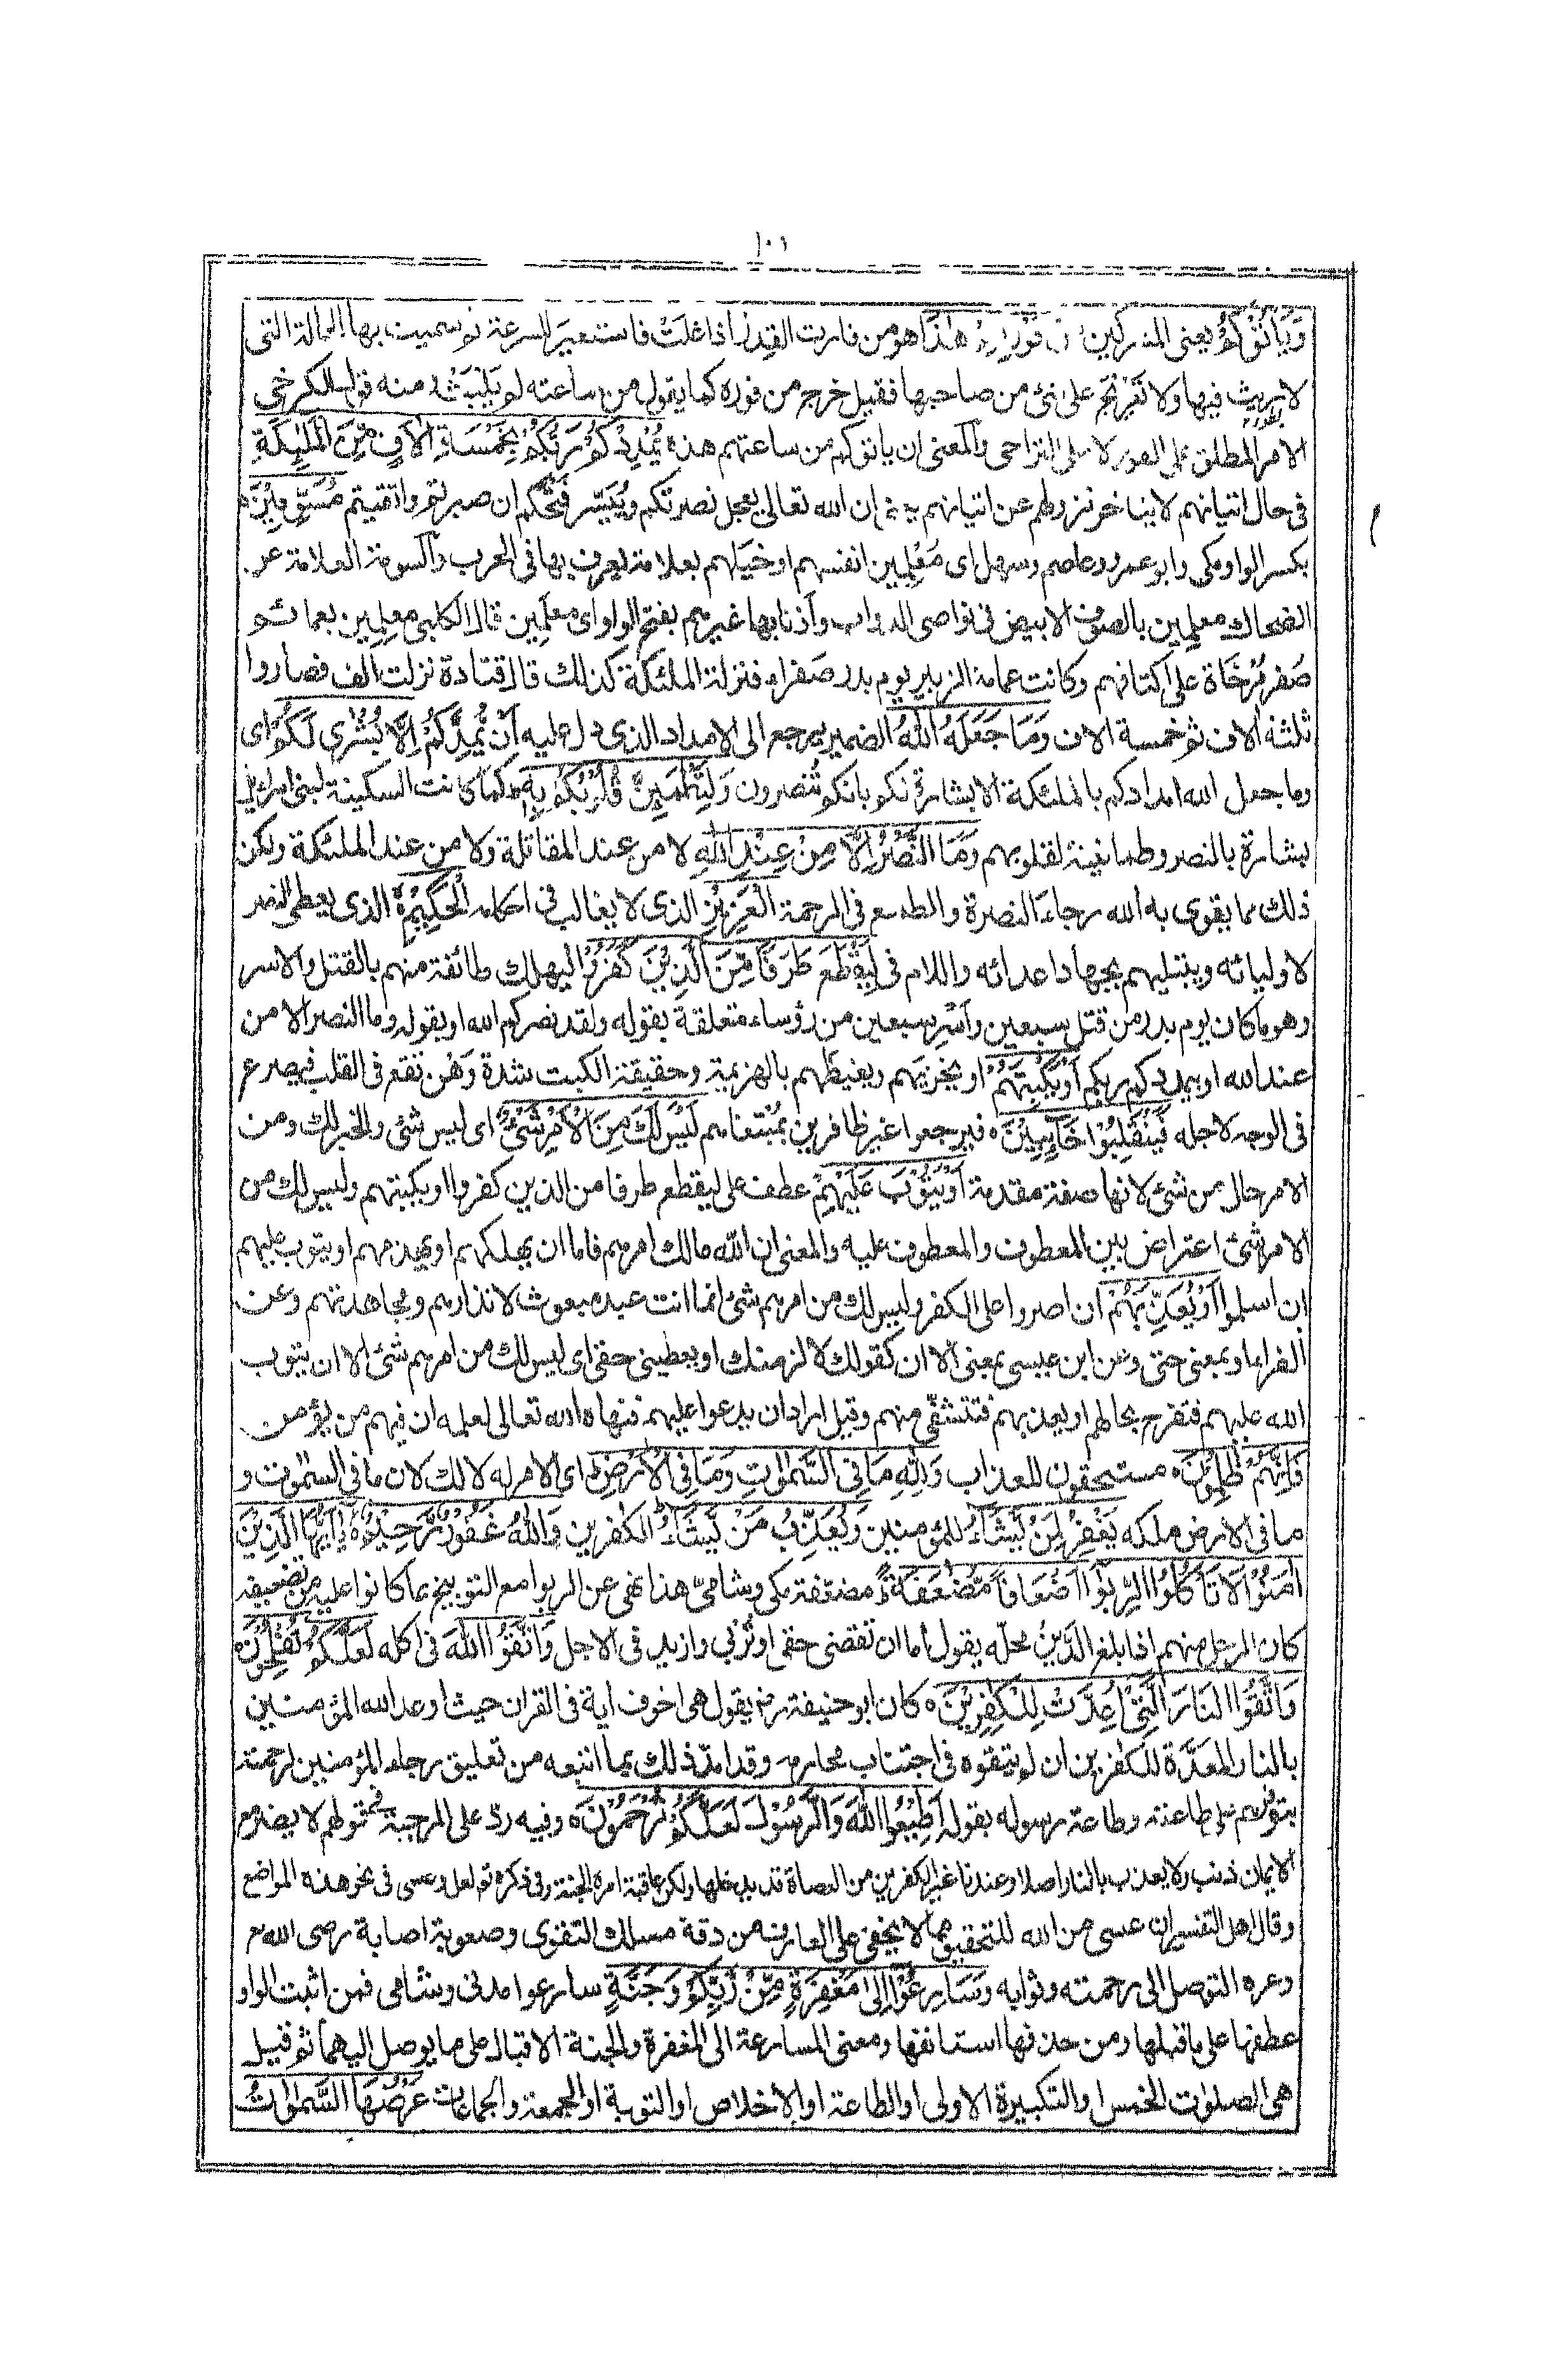 ١٠١
وَيَأْتُوْكُمْ يعنى المشركين مِنْ فَوْرِهِمْ هٰذَا هو من فارت القدر اذا غلت فاستعير للسرعة ثم سميت بها الحالة التى
لا ريث فيها ولا تعريج على شئ من صاحبها فقيل خرج من فوره كما يقول من ساعته لم يلبث ومنه قول الكرخى
الامر المطلق على الفور لا على التراخى والمعنى ان ياتوكم من ساعتهم هذه يُمْدِدْكُمْ رَبُّكُمْ بِخَمْسَةِ اٰلَافٍ مِّنَ الْمَلٰٓئِكَةِ
فى حال اتيانهم لا يتاخر نزولهم عن اتيانهم يريد ان الله تعالى يعجل نصرتكم وييسر فتحكم ان صبرتم واتقيتم مُسَوِّمِيْنَ ه
بكسر الواو مكى وابو عمرو وعاصم وسهل اى معلمين انفسهم او خيلهم بعلامة يعرف بها فى الحرب والسومة العلامة عن
الضحاك معلمين بالصوف الابيض فى نواصى الدواب واذنابها غيرهم بفتح الواو اى معلمين قال الكلبى معلمين بعمائم
صفر مرخاة على اكتافهم وكانت عمامة الزبير يوم بدر صفراء فنزلت الملئكة كذلك قال قتادة نزلت الف فصاروا
ثلثة الاف ثم خمسة الاف وَمَا جَعَلَهُ اللّٰهُ الضمير يرجع الى الامداد الذى دل عليه ان يُّمِدَّكُمْ اِلَّا بُشْرٰى لَكُمْ اى
وما جعل الله امدادكم بالملئكة الا بشارة لكم بانكم تنصرون وَلِتَطْمَئِنَّ قُلُوْبُكُمْ بِهٖ كما كانت السكينة لبنى اسرائيل
بشارة بالنصر وطمانينة لقلوبهم وَمَا النَّصْرُ اِلَّا مِنْ عِنْدِ اللّٰهِ لا من عند المقاتلة ولا من عند الملئكة ولكن
ذلك مما يقوى به الله رجاء النصرة والطمع فى الرحمة الْعَزِيْزِ الذى لا يغالب فى احكامه الْحَكِيْمِ ه الذى يعطى النصر
لاوليائه ويبتليهم بجهاد اعدائه واللام فى لِيَقْطَعَ طَرَفًا مِّنَ الَّذِيْنَ كَفَرُوْٓا ليهلك طائفة منهم بالقتل والاسر
وهو ما كان يوم بدر من قتل سبعين واسر سبعين من رؤساء متعلقة بقوله ولقد نصركم الله او بقوله وما النصر الا من
عند الله او يمددكم ربكم اَوْ يَكْبِتَهُمْ او يخزيهم ويغيظهم بالهزيمة وحقيقة الكبت شدة وهن تقع فى القلب فيصرع
فى الوجه لاجله فَيَنْقَلِبُوْا خَآئِبِيْنَ ه فيرجعوا غير ظافرين بمبتغاهم لَيْسَ لَكَ مِنَ الْاَمْرِ شَىْءٌ اى ليس شئ والخبر لك ومن
الامر حال من شئ لانها صفة مقدمة اَوْ يَتُوْبَ عَلَيْهِمْ عطف على ليقطع طرفا من الذين كفروا او يكبتهم وليس لك من
الامر شئ اعتراض بين المعطوف والمعطوف عليه والمعنى ان الله مالك امرهم فاما ان يهلكهم او يهزمهم او يتوب عليهم
ان اسلموا اَوْ يُعَذِّبَهُمْ ان اصروا على الكفر وليس لك من امرهم شئ انما انت عبد مبعوث لانذارهم ومجاهدتهم وعن
الفراء او بمعنى حتى وعن ابن عيسى بمعنى الا ان كقولك لالزمنك او تعطينى حقى اى ليس لك من امرهم شئ الا ان يتوب
الله عليهم فتفرح بحالهم او يعذبهم فتتشفى منهم وقيل اراد ان يدعوا عليهم فنهاه الله تعالى لعلمه ان فيهم من يؤمن
فَاِنَّهُمْ ظٰلِمُوْنَ ه مستحقون للعذاب وَلِلّٰهِ مَا فِى السَّمٰوٰتِ وَمَا فِى الْاَرْضِ ط اى الامر له لا لك لان ما فى السموت و
ما فى الارض ملكه يَغْفِرُ لِمَنْ يَّشَآءُ للمؤمنين وَيُعَذِّبُ مَنْ يَّشَآءُ الكفرين وَاللّٰهُ غَفُوْرٌ رَّحِيْمٌ ه يٰٓاَيُّهَا الَّذِيْنَ
اٰمَنُوْا لَا تَاْكُلُوا الرِّبٰوا اَضْعَافًا مُّضٰعَفَةً مضعفة مكى وشامى هذا نهى عن الربوا مع التوبيخ بما كانوا عليه من تضعيفه
كان الرجل منهم اذا بلغ الدين محله يقول اما ان تقضى حقى او تربى وازيد فى الاجل وَاتَّقُوا اللّٰهَ فى اكله لَعَلَّكُمْ تُفْلِحُوْنَ ه
وَاتَّقُوا النَّارَ الَّتِىْٓ اُعِدَّتْ لِلْكٰفِرِيْنَ ه كان ابو حنيفة رض يقول هى اخوف اية فى القران حيث اوعد الله المؤمنين
بالنار المعدة للكفرين ان لم يتقوه فى اجتناب محارمه وقد امد ذلك بما اتبعه من تعليق رجاء المؤمنين لرحمته
بتوفرهم على طاعته وطاعة رسوله بقوله اَطِيْعُوا اللّٰهَ وَالرَّسُوْلَ لَعَلَّكُمْ تُرْحَمُوْنَ ه وفيه رد على المرجئة فى قولهم لا يضر مع
الايمان ذنب ولا يعذب بالنار اصلا وعندنا غير الكفرين من العصاة قد يدخلها ولكن عاقبة امره الجنة وفى ذكره تع لعل وعسى فى نحو هذه المواضع
وقال اهل التفسير ان عسى من الله للتحقيق مما لا يخفى على العارف من دقة مسلك التقوى وصعوبة اصابة رضى الله تع
وعزه التوصل الى رحمته وثوابه وَسَارِعُوْٓا اِلٰى مَغْفِرَةٍ مِّنْ رَّبِّكُمْ وَجَنَّةٍ سارعوا مدنى وشامى فمن اثبت الواو
عطفها على ما قبلها ومن حذفها استانفها ومعنى المسارعة الى المغفرة والجنة الاقبال على ما يوصل اليهما ثم قيل
هى الصلوات الخمس او التكبيرة الاولى او الطاعة او الاخلاص او التوبة او الجمعة والجماعات عَرْضُهَا السَّمٰوٰتُ